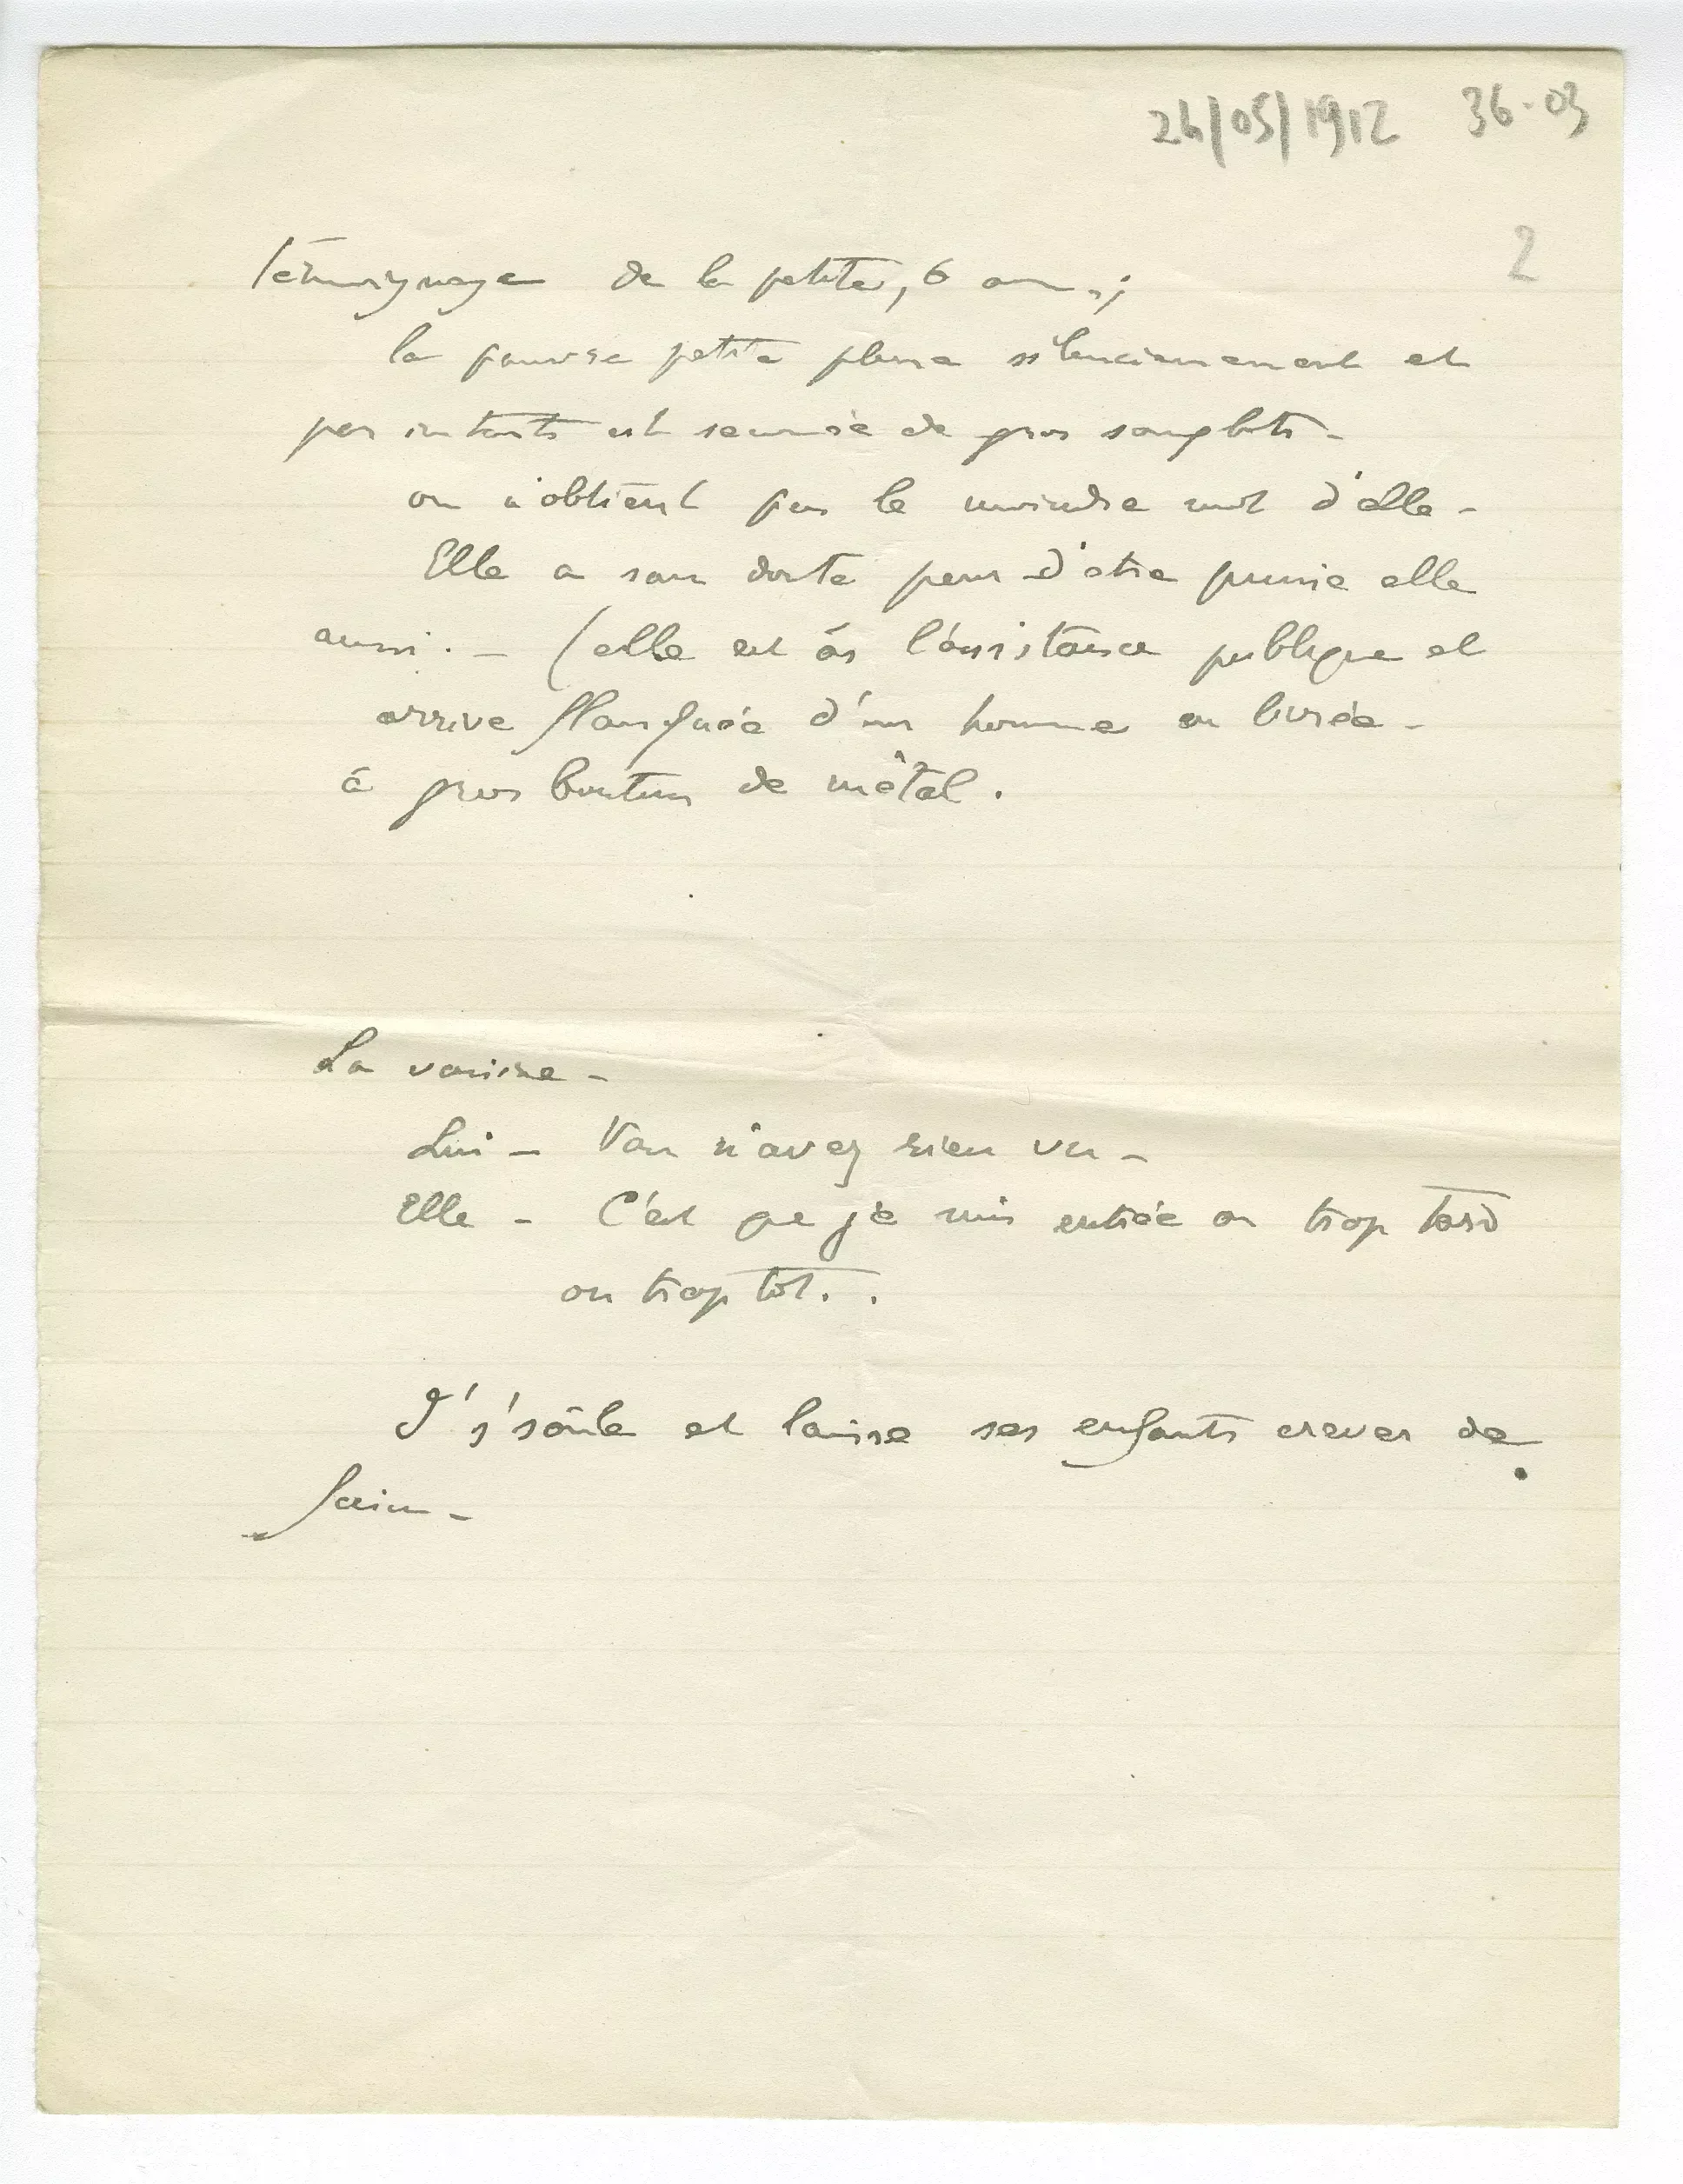 26/05/1912 36-03
2
Témoignage de la petite, 6 ans ;
la pauvre petite pleure silencieusement et
par instants est secouée de gros sanglots -
on n'obtient pas le moindre mot d'elle -
Elle a sans doute peur d'être punie elle
aussi. - (elle est à l'assistance publique et
arrive flanquée d'un homme en livrée -
à gros boutons de métal.
La voisine -
Lui - Vous n'avez rien vu -
Elle - C'est que je suis entrée ou trop tard
ou trop tôt. .
I' s'soûle et laisse ses enfants crever de
faim -